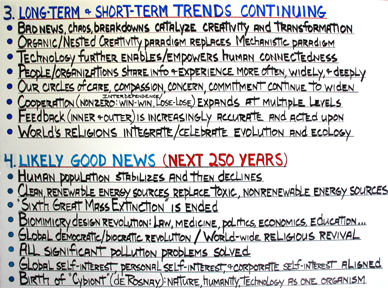 3. LONG-TERM & SHORT-TERM TRENDS CONTINUING
• BAD NEWS, CHAOS, BREAKDOWNS CATALYZE CREATIVITY AND TRANSFORMATION
• ORGANIC/NESTED CREATIVITY PARADIGM REPLACES MECHANISTIC PARADIGM
• TECHNOLOGY FURTHER ENABLES/EMPOWERS HUMAN CONNECTEDNESS
• PEOPLE/ORGANIZATIONS SHARE INFO & EXPERIENCE MORE OFTEN, WIDELY, & DEEPLY
• OUR CIRCLES OF CARE, COMPASSION, CONCERN, COMMITMENT CONTINUE TO WIDEN
INTERDEPENDENCE/
• COOPERATION (NONZERO: WIN-WIN, LOSE-LOSE) EXPANDS AT MULTIPLE LEVELS
• FEEDBACK (INNER & OUTER) IS INCREASINGLY ACCURATE AND ACTED UPON
• WORLD'S RELIGIONS INTEGRATE/CELEBRATE EVOLUTION AND ECOLOGY
4. LIKELY GOOD NEWS (NEXT 250 YEARS)
• HUMAN POPULATION STABILIZES AND THEN DECLINES
• CLEAN, RENEWABLE ENERGY SOURCES REPLACE TOXIC, NONRENEWABLE ENERGY SOURCES
• "SIXTH GREAT MASS EXTINCTION" IS ENDED
• BIOMIMICRY DESIGN REVOLUTION: LAW, MEDICINE, POLITICS, ECONOMICS, EDUCATION...
• GLOBAL DEMOCRATIC/BIOCRATIC REVOLUTION / WORLD-WIDE RELIGIOUS REVIVAL
• ALL SIGNIFICANT POLLUTION PROBLEMS SOLVED
• GLOBAL SELF-INTEREST, PERSONAL SELF-INTEREST, & CORPORATE SELF-INTEREST ALIGNED
• BIRTH OF "CYBIONT" (DE ROSNAY): NATURE, HUMANITY, TECHNOLOGY AS ONE ORGANISM